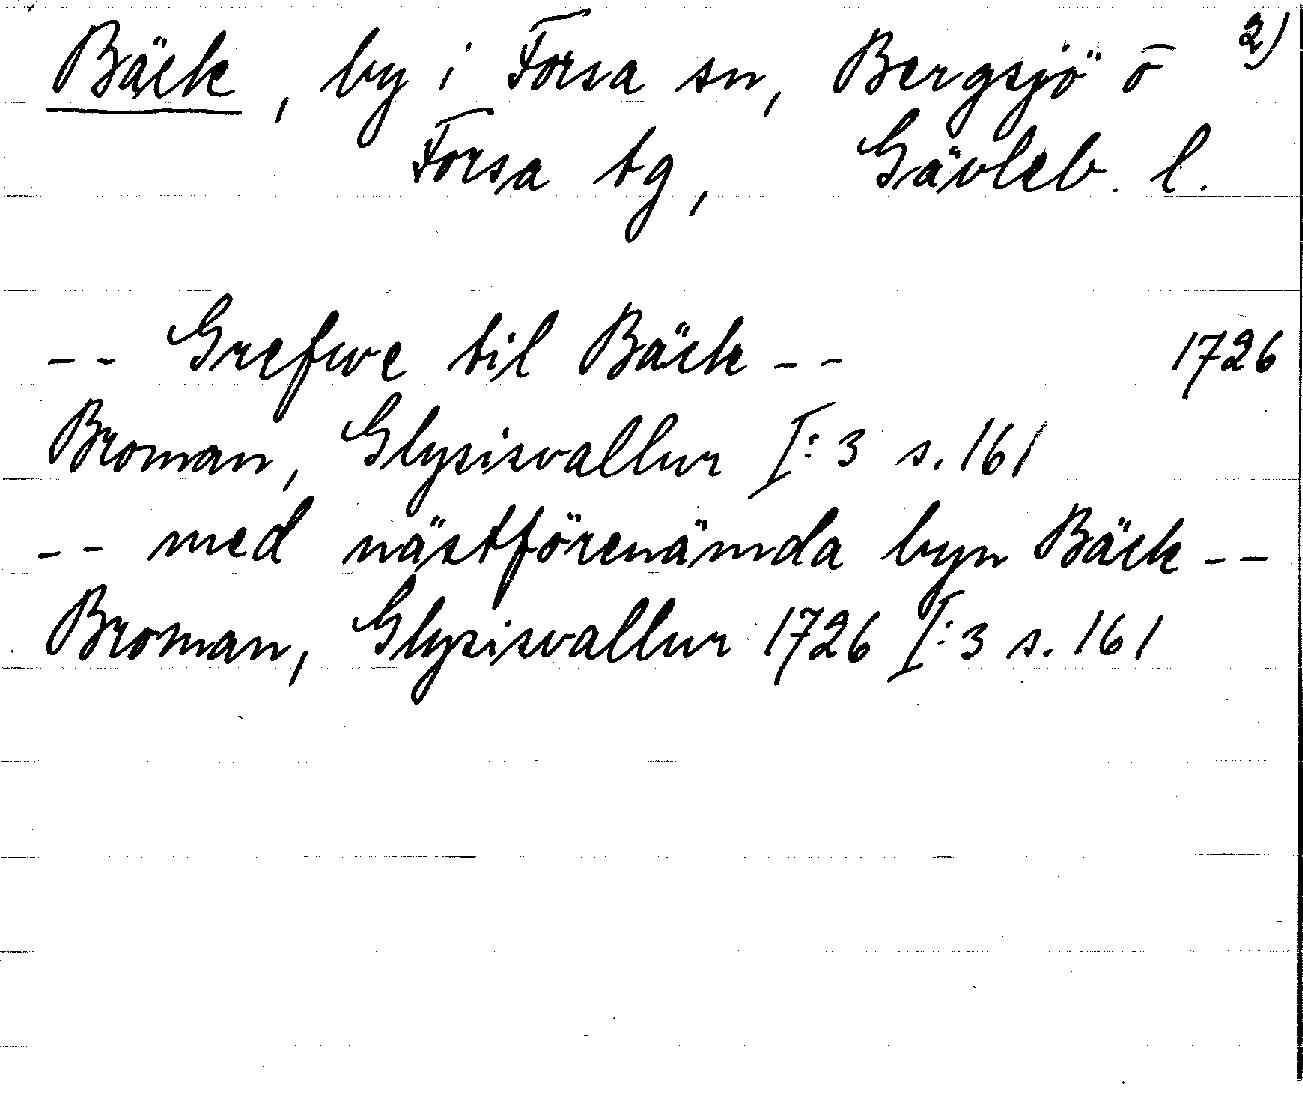 Bäck, by i Forsa sn, Bergsjö o̅ 2)
Forsa tg, Gävleb. l.
-- Grefwe til Bäck -- 1726
Broman, Glysisvallur I:3 s. 161
-- med nästförenämda byn Bäck --
Broman, Glysisvallur 1726 I:3 s. 161